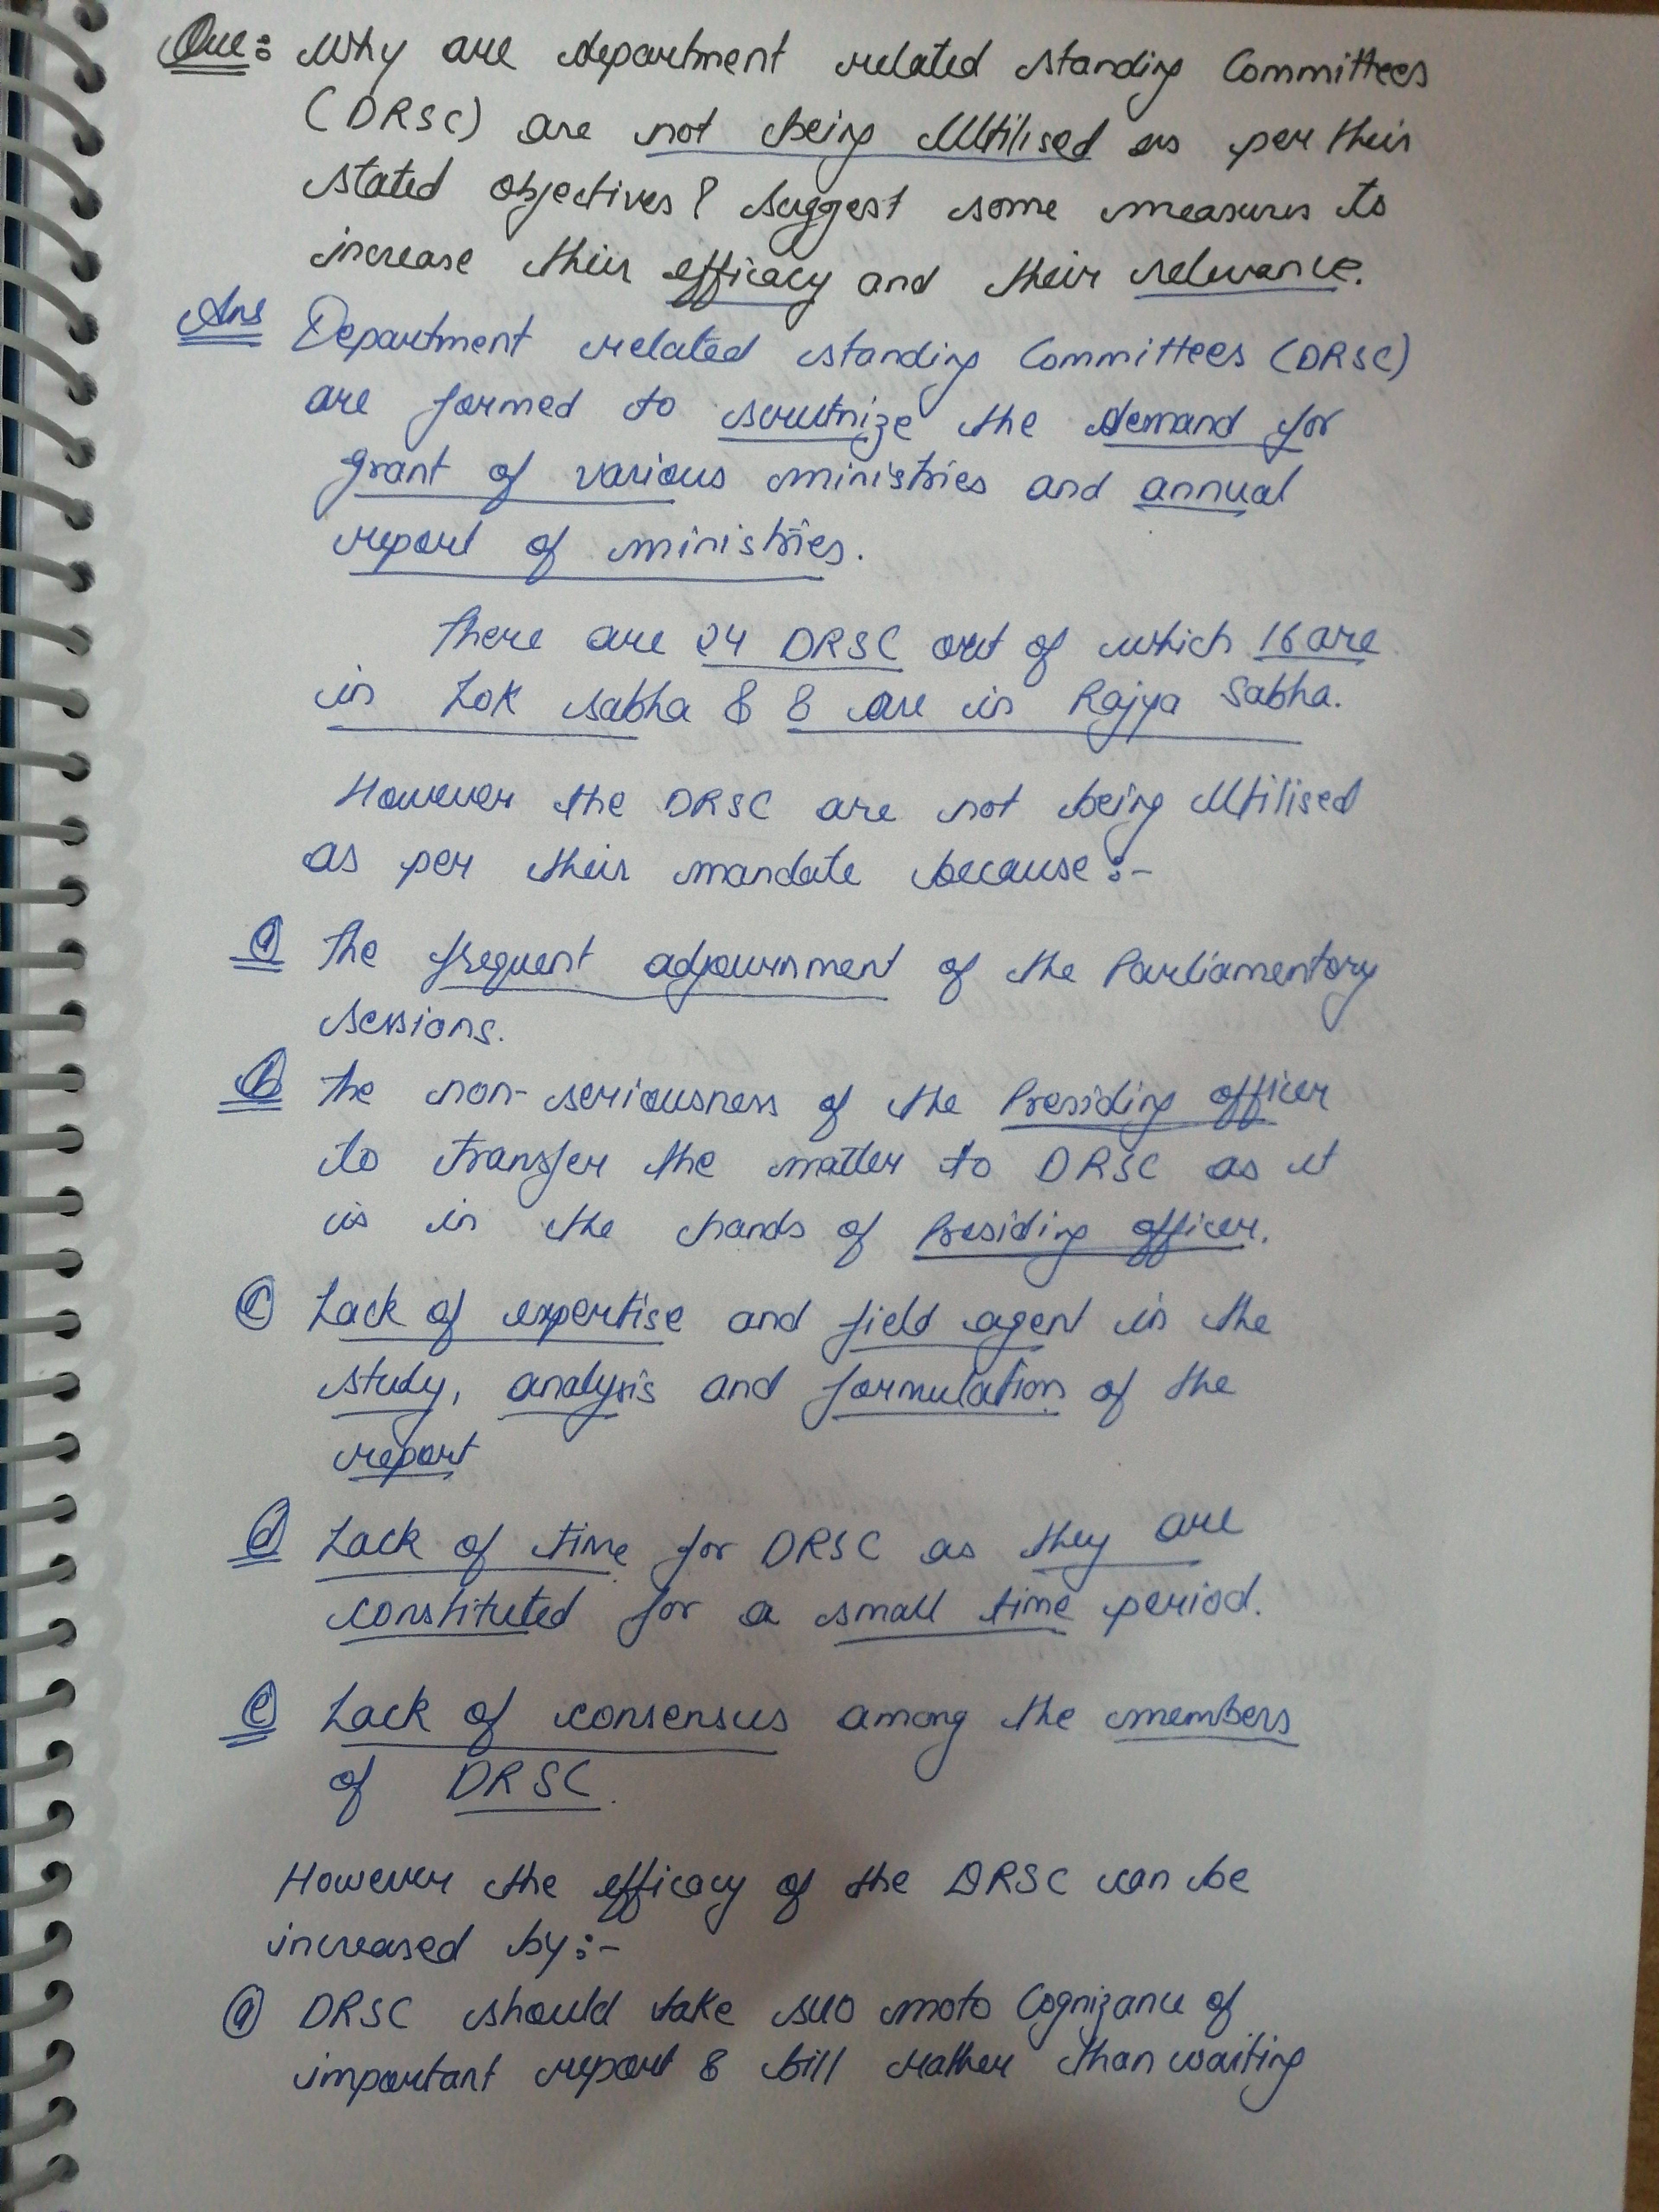 Que: Why are department related standing Committees
(DRSC) are not being Utilised as per their
stated objectives? Suggest some measures to
increase their efficacy and their relevance.
Ans Department related standing Committees (DRSC)
are formed to scrutnize the demand for
grant of various ministries and annual
report of ministries.
There are 24 DRSC out of which 16 are
in Lok sabha & 8 are in Rajya Sabha.
However the DRSC are not being Utilised
as per their mandate because:-
a The frequent adjournment of the Parliamentory
sessions.
b The non-seriousness of the Presiding officer
to transfer the matter to DRSC as it
is in the hands of Presiding officer.
c Lack of expertise and field agent in the
study, analysis and formulation of the
report
d Lack of time for DRSC as they are
constituted for a small time period.
e Lack of consensus among the members
of DRSC.
However the efficacy of the DRSC can be
increased by:-
a DRSC should take suo moto Cognizance of
important report & bill rather than waiting